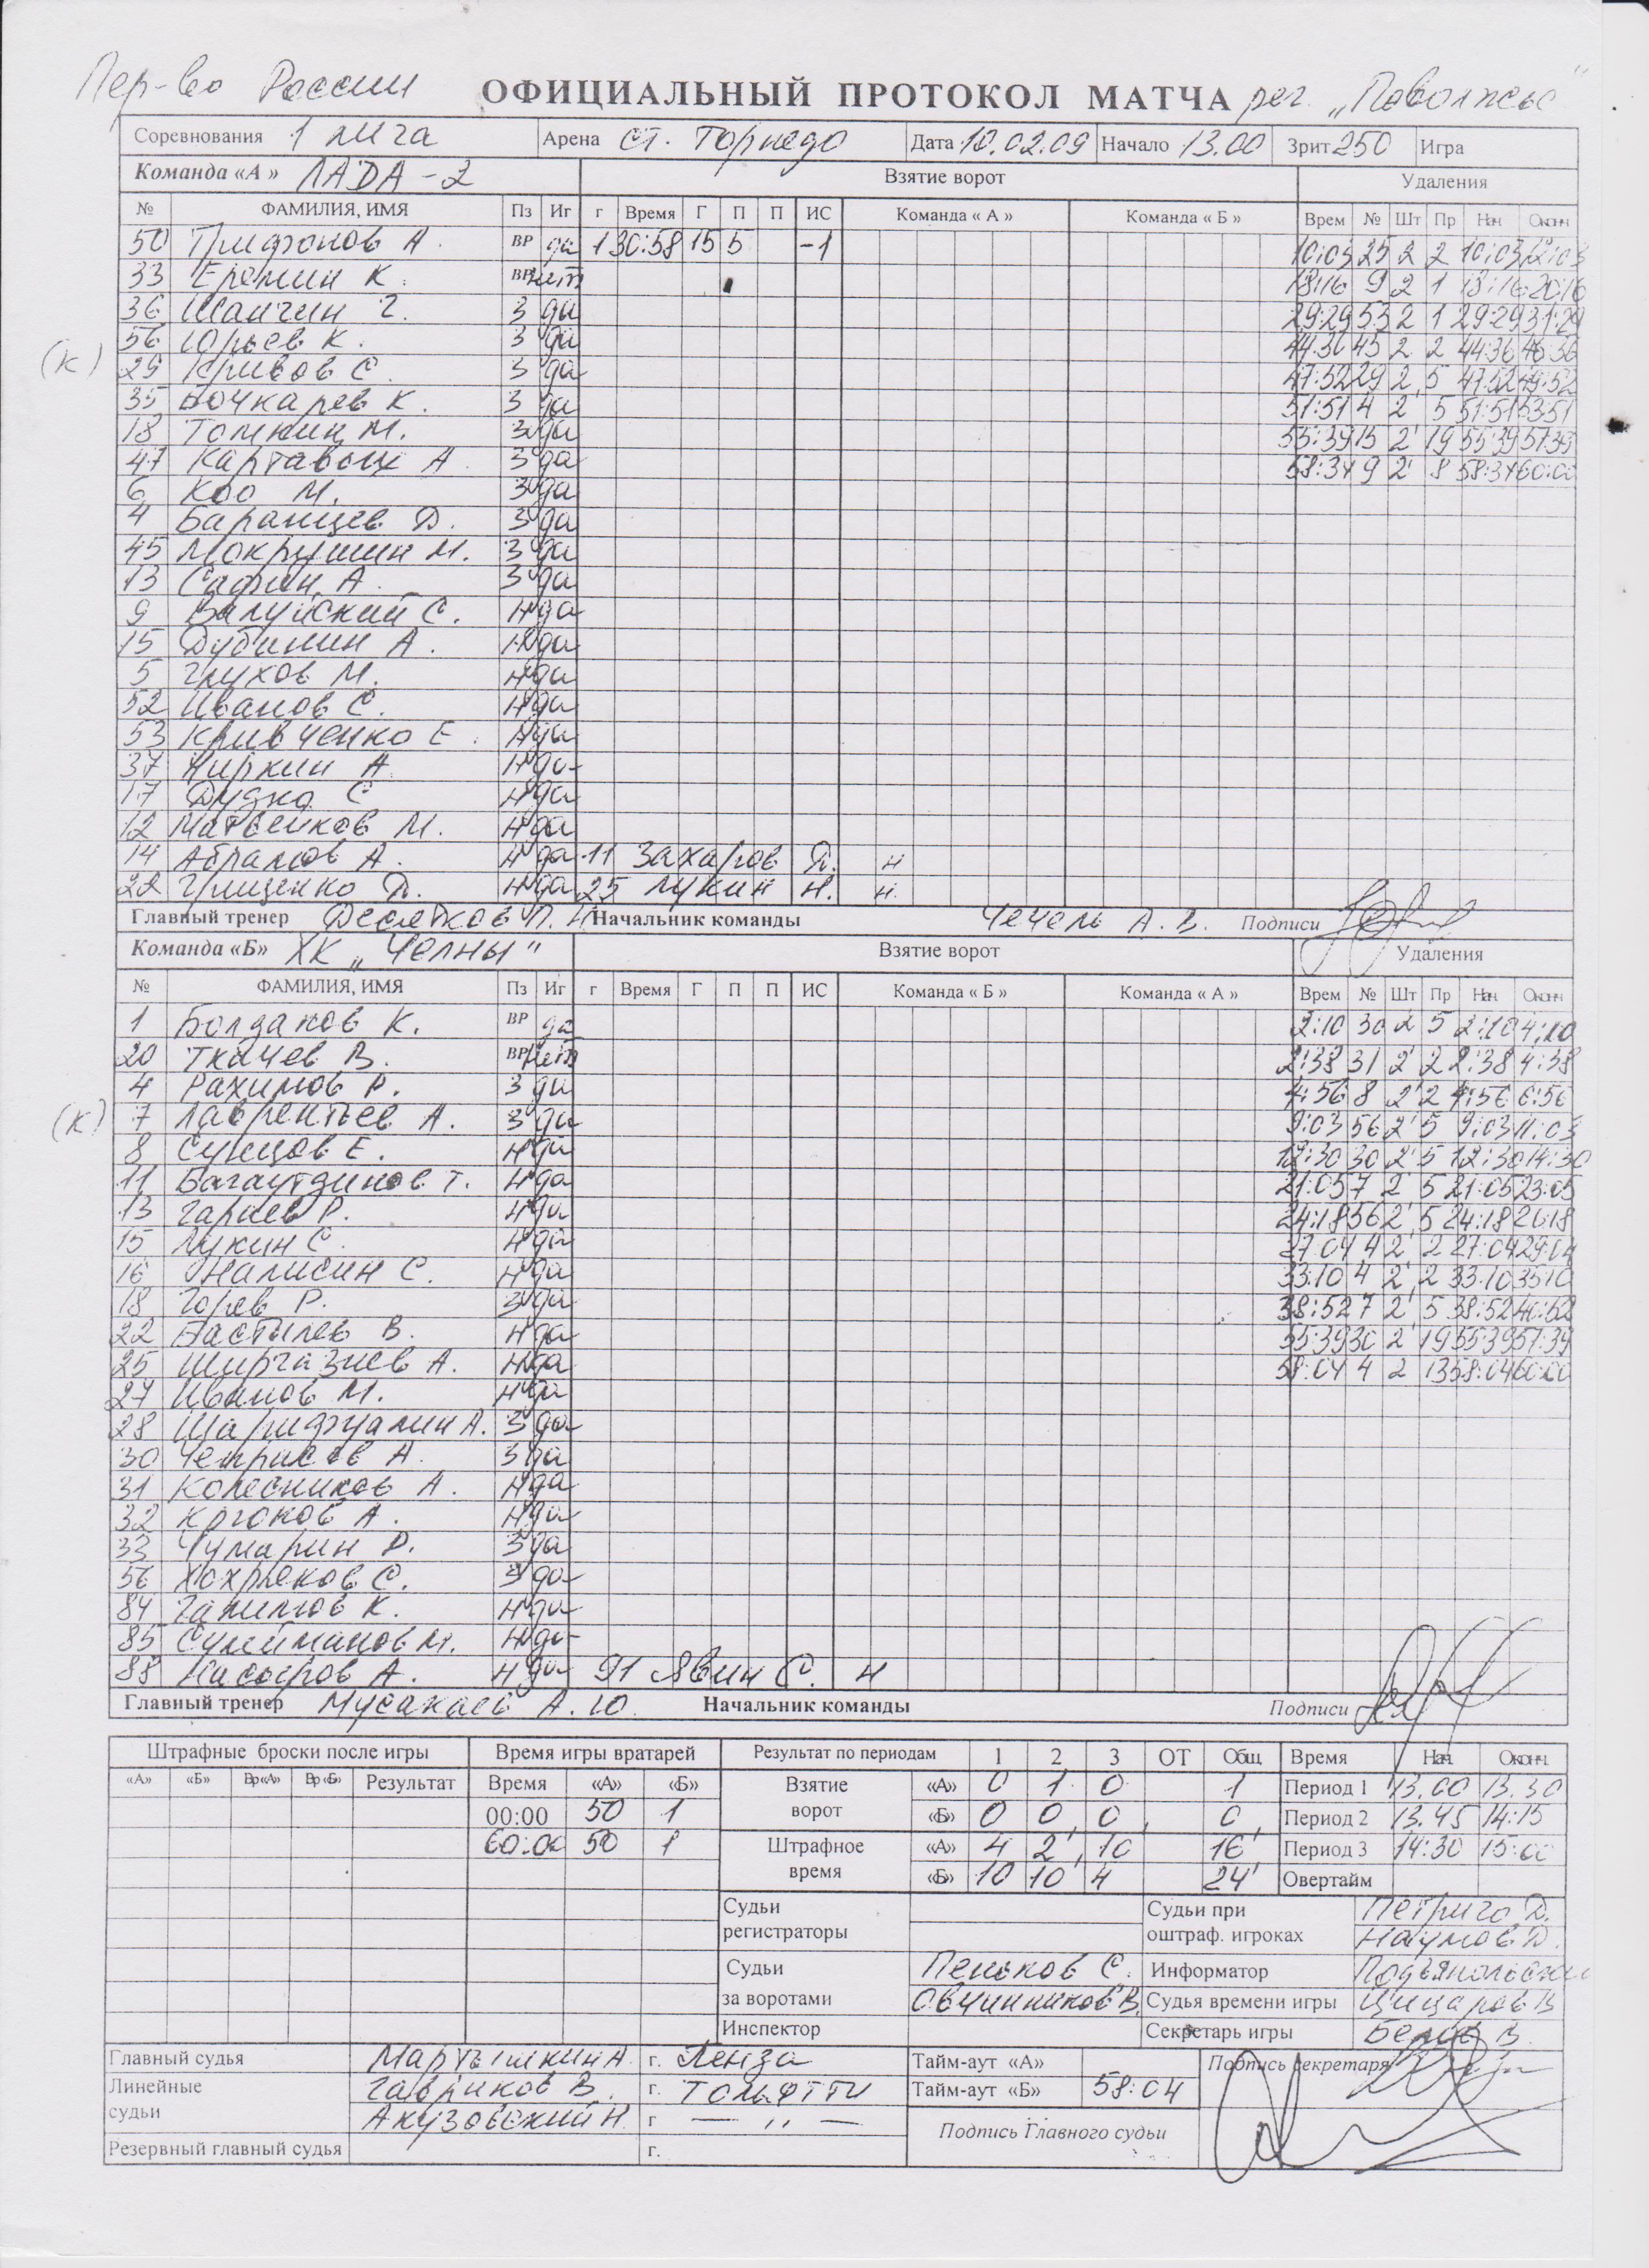 Пер-во России ОФИЦИАЛЬНЫЙ ПРОТОКОЛ МАТЧА рег. „Поволжье"
Соревнования 1 лига Арена ст. Торпедо Дата 10.02.09 Начало 13.00 Зрит 250 Игра
Команда «А» ЛАДА-2 Взятие ворот Удаления
№ ФАМИЛИЯ, ИМЯ Пз Иг г Время Г П П ИС Команда «А» Команда «Б» Врем № Шт Пр Нач Оконч
50 А. ВР да 1 30:58 15 5 -1 10:03 25 2 2 10:03 12:03
33 Еремин К. ВР нет 18:16 9 2 1 18:16 20:16
36 Шайчин Г. З да 29:29 53 2 1 29:29 31:29
56 Юрьев К. З да 44:36 45 2 2 44:36 46:36
(К) 29 Кривов С. З да 47:52 29 2 5 47:52 49:52
35 Бочкарев К. З да 51:51 4 2' 5 51:51 53:51
18 Томкин М. З да 55:39 15 2' 19 55:39 57:39
47 Картавых А. З да 58:34 9 2' 8 58:34 60:00
6 Коо М. З да
4 Баранцев Д. З да
45 Мокрушин М. З да
13 Сафин А. З да
9 Валуйский С. Н да
15 Дубинин А. Н да
5 Глухов М. Н да
52 Иванов С. Н да
53 Кривченко Е. Н да
37 Ниркин А. Н да
17 Дудко С Н да
12 Матвейков М. Н да
14 Абрамов А. Н да 11 Захаров Д. Н
22 Грищенко Д. Н да 25 Лукин Н. Н.
Главный тренер Десятков П. Н. Начальник команды Чечель А. В. Подписи
Команда «Б» ХК „Челны" Взятие ворот Удаления
№ ФАМИЛИЯ, ИМЯ Пз Иг г Время Г П П ИС Команда «Б» Команда «А» Врем № Шт Пр Нач Оконч
1 Болдаков К. ВР да 2:10 30 2 5 2:10 4:10
20 Ткачев В. ВР нет 2:38 31 2' 2 2:38 4:38
4 Рахимов Р. З да 4:56 8 2' 2 4:56 6:56
(К) 7 Лаврентьев А. З да 9:03 56 2' 5 9:03 11:03
8 Сунцов Е. Н да 12:30 30 2' 5 12:30 14:30
11 Багаутдинов Т. Н да 21:05 7 2' 5 21:05 23:05
13 Гараев Р. Н да 24:18 56 2' 5 24:18 26:18
15 Лукин С. Н да 27:04 4 2' 2 27:04 29:04
16 Налисин С. Н да 33:10 4 2' 2 33:10 35:10
18 Горев Р. З да 38:52 7 2' 5 38:52 40:52
22 Бастылев В. Н да 55:39 30 2' 19 55:39 57:39
25 Ширгазиев А. Н да 58:04 4 2 13 58:04 60:00
27 Иванов М. Н да
28 Шарифуллин А. З да
30 А. З да
31 Колесников А. Н да
32 Крюков А. Н да
33 Чумарин Р. З да
56 Хохряков С. З да
84 Галимов К. Н да
85 Сулейманов М. Н да
88 Насыров А. Н да 91 Явин С. Н
Главный тренер Мусакаев А. Ю. Начальник команды Подписи
Штрафные броски после игры Время игры вратарей Результат по периодам 1 2 3 ОТ Общ Время Нач. Оконч.
«А» «Б» Вр«А» Вр«Б» Результат Время «А» «Б» Взятие «А» 0 1 0 1 Период 1 13.00 13.30
00:00 50 1 ворот «Б» 0 0 0 0 Период 2 13.45 14:15
60:00 50 1 Штрафное «А» 4 2' 10 16' Период 3 14:30 15:00
время «Б» 10 10' 4 24' Овертайм
Судьи Судьи при Петриго Д.
регистраторы оштраф. игроках Наумов Д.
Судьи Пеньков С. Информатор
за воротами Овчинников В. Судья времени игры Цицаров В
Инспектор Секретарь игры Белов В.
Главный судья Мартышкин А г. Пенза Тайм-аут «А» Подпись секретаря
Линейные Гавриков В. г. Тольятти Тайм-аут «Б» 58:04
судьи Акузовский Н. г — „ — Подпись Главного судьи
Резервный главный судья г.